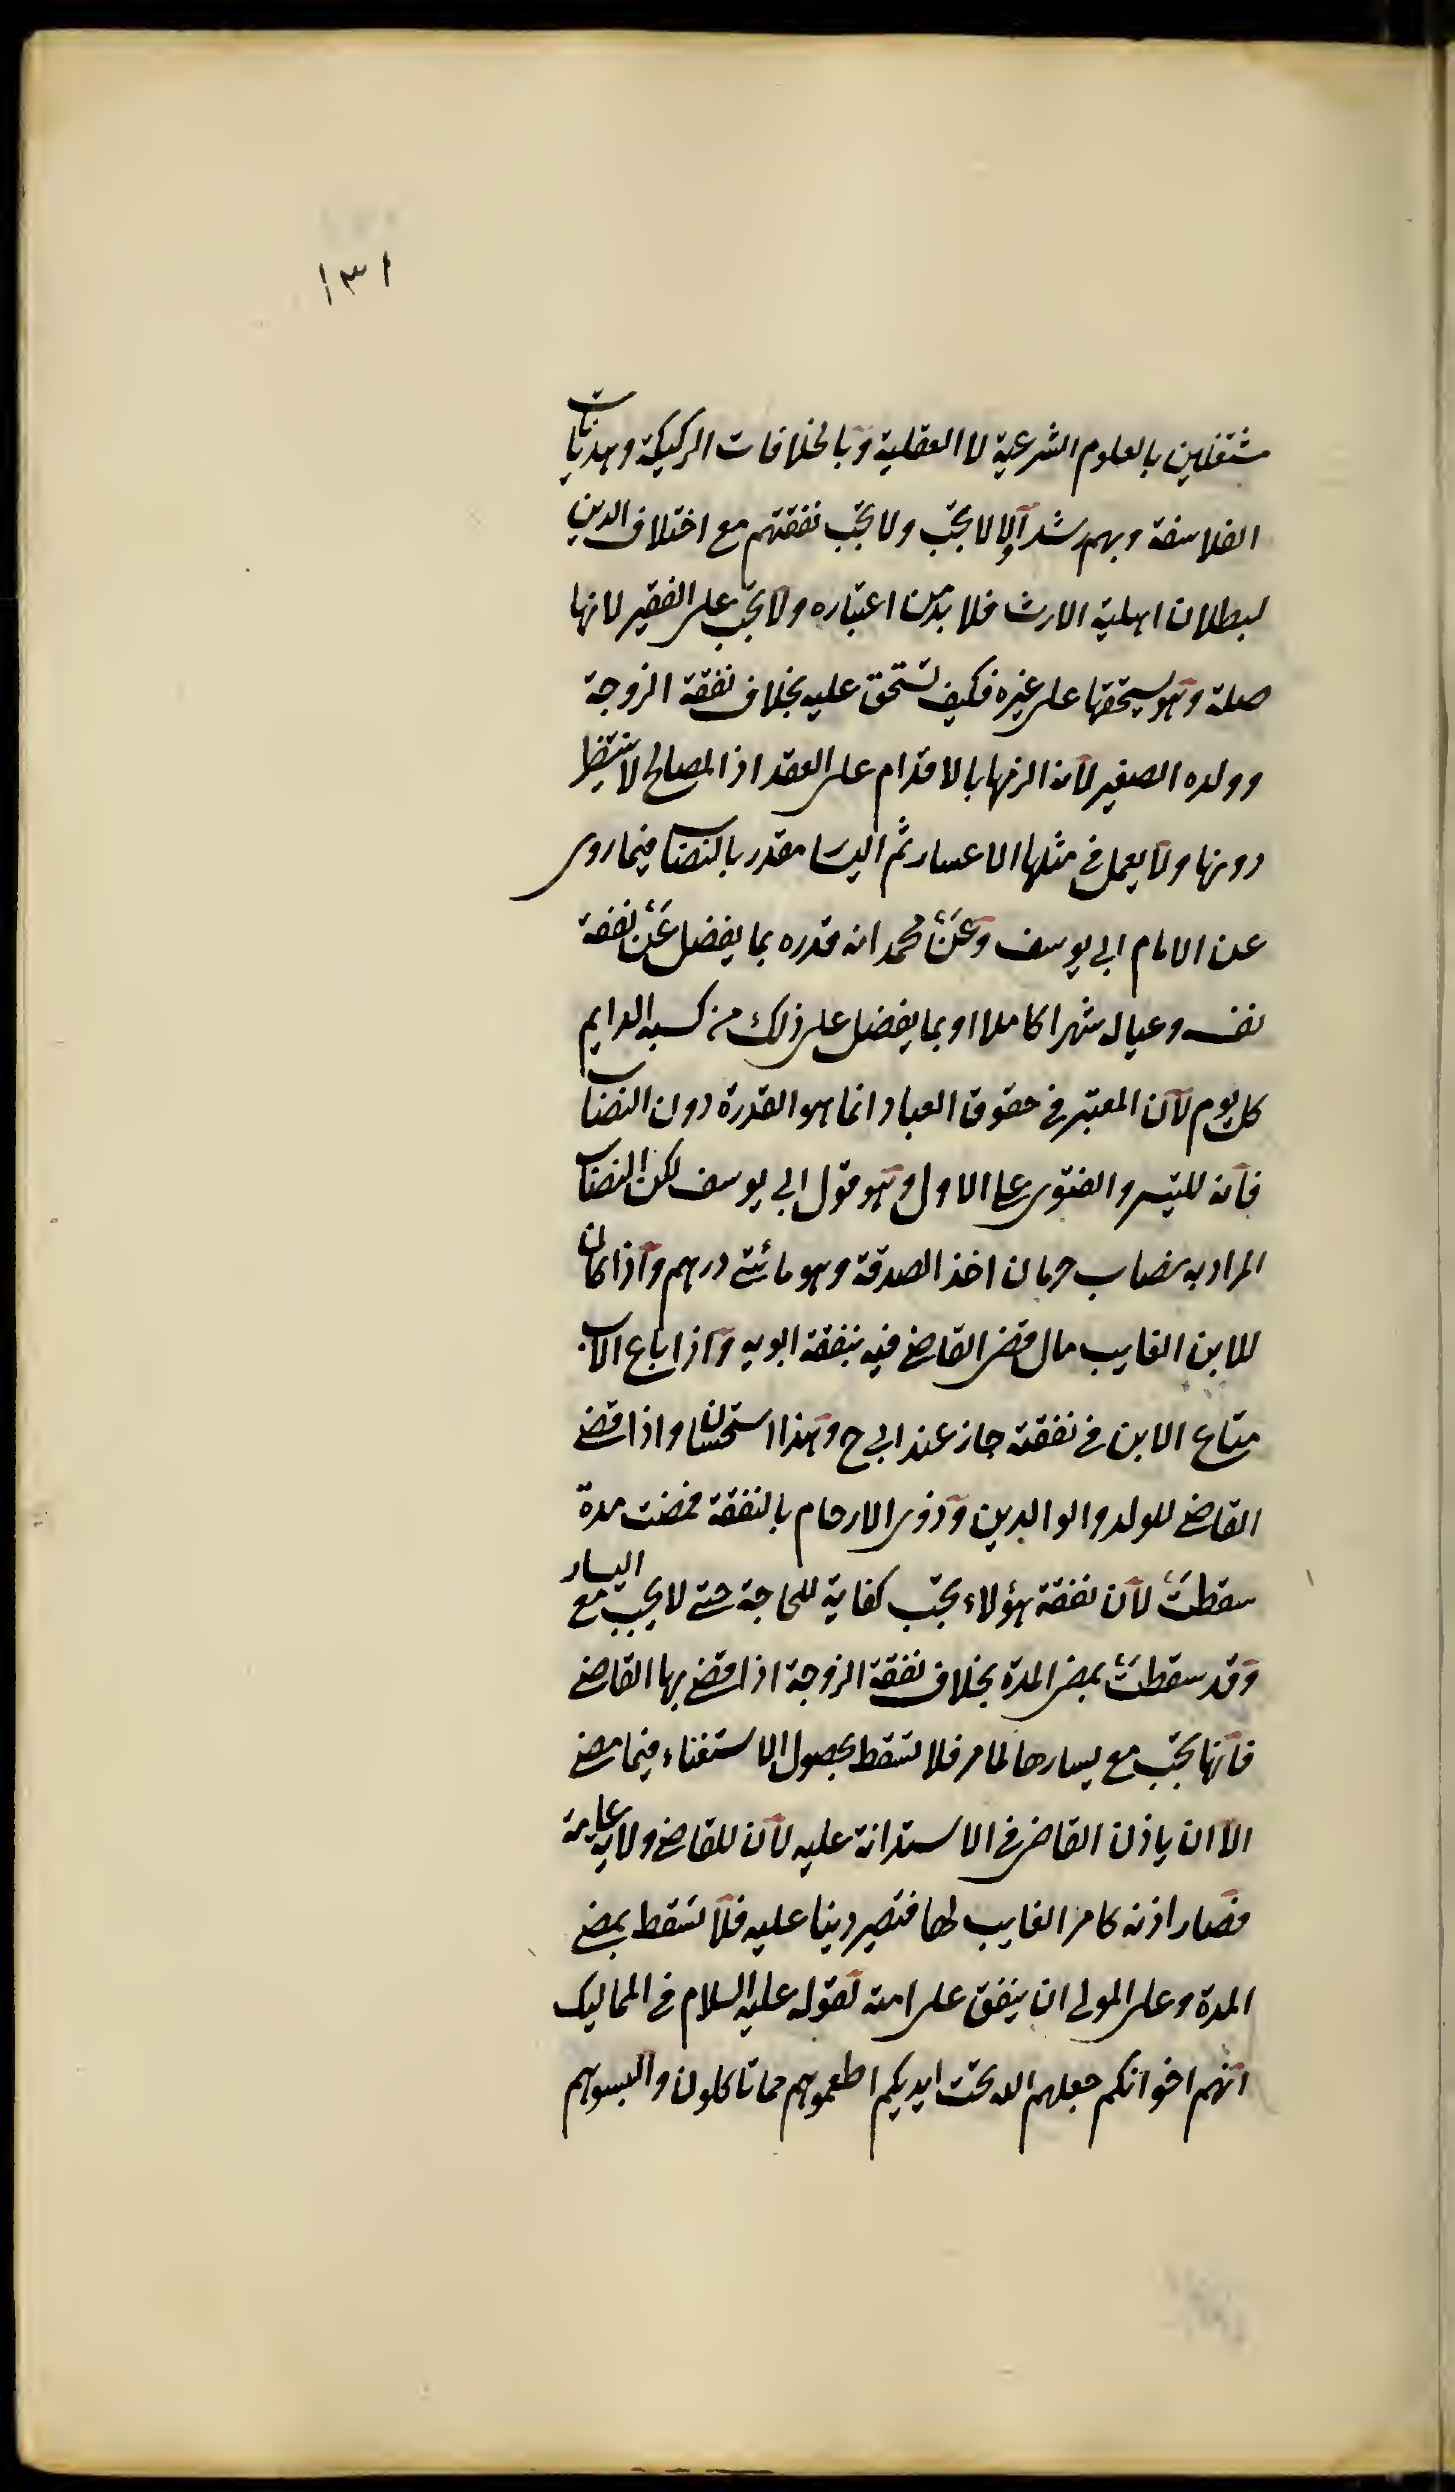 ١٣١
مشتغلين بالعلوم الشرعية لا العقلية وبالخلافات الركيكة وهذيانات
الفلاسفة وبهم رشد والا لا يجب ولا يجب نفقتهم مع اختلاف الدين
لبطلان اهلية الارث فلا بد من اعتباره ولا يجب على الفقير لانها
صلة وهو يستحقها على غيره فكيف تستحق عليه بخلاف نفقة الزوجة
وولده الصغير لانه الزمها بالاقدام على العقد اذ المصالح لا ينتظم
دونها ولا يعمل في مثلها الاعسار ثم اليسار مقدر بالنصاب فيما روى
عن الامام ابي يوسف وعن محمد انه قدره بما يفضل عن نفقة
نفسه وعياله شهرا كاملا او بما يفضل على ذلك من كسبه الدايم
كل يوم لان المعتبر في حقوق العباد انما هو القدرة دون النصاب
فانه للتيسر والفتوى على الاول وهو قول ابي يوسف لكن النصاب
المراد به نصاب حرمان اخذ الصدقة وهو مائتي درهم واذا كان
للابن الغايب مال قضى القاضي فيه بنفقة ابويه واذا باع الاب
متاع الابن في نفقته جاز عند ابي ح وهذا استحسان واذا قضى
القاضي للولد والوالدين وذوى الارحام بالنفقة فمضت مدة
سقطت لان نفقة هؤلاء يجب كفاية للحاجة حتى لا يجب مع اليسار
وقد سقطت بمضى المدة بخلاف نفقة الزوجة اذا قضى بها القاضي
فانها يجب مع يسارها لما مر فلا تسقط بحصول الاستغناء فيما مضى
الا ان ياذن القاضى في الاستدانة عليه لان للقاضي ولاية عامة
فصار اذنه كامر الغايب لها فتصير دينا عليه فلا تسقط بمضى
المدة وعلى المولى ان ينفق على امته لقوله عليه السلام في المماليك
انهم اخوانكم جعلهم الله تحت ايديكم اطعموهم مما تاكلون والبسوهم